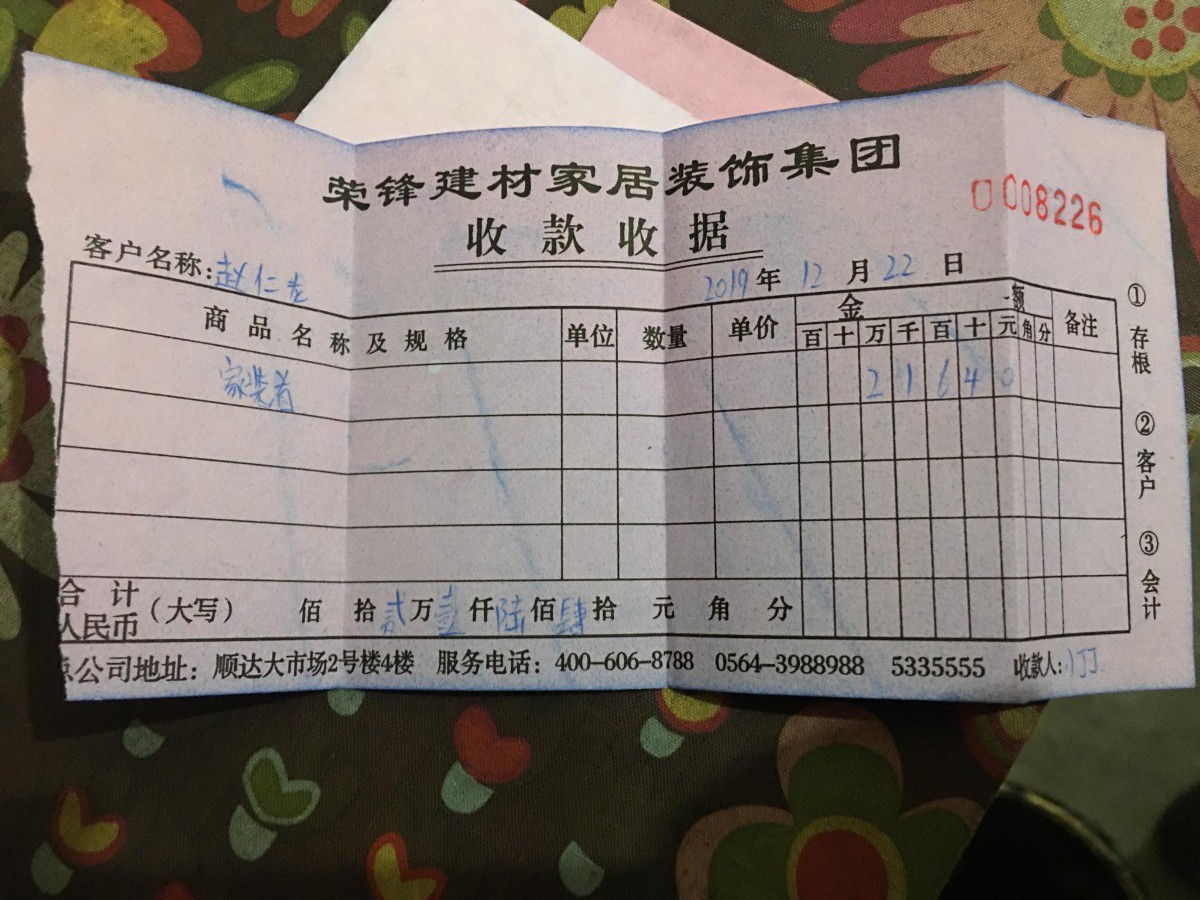 荣锋建材家居装饰集团
008226
收款收据
客户名称:赵仁龙
2019年12月22日
商品名称及规格 单位 数量 单价 金额 备注
百 十 万 千 百 十 元 角 分
家装 2 1 6 4 0
合计人民币(大写) 佰 拾 贰万 壹仟 陆佰 肆拾 元 角 分
总公司地址:顺达大市场2号楼4楼 服务电话:400-606-8788 0564-3988988 5335555 收款人:
①存根 ②客户 ③会计